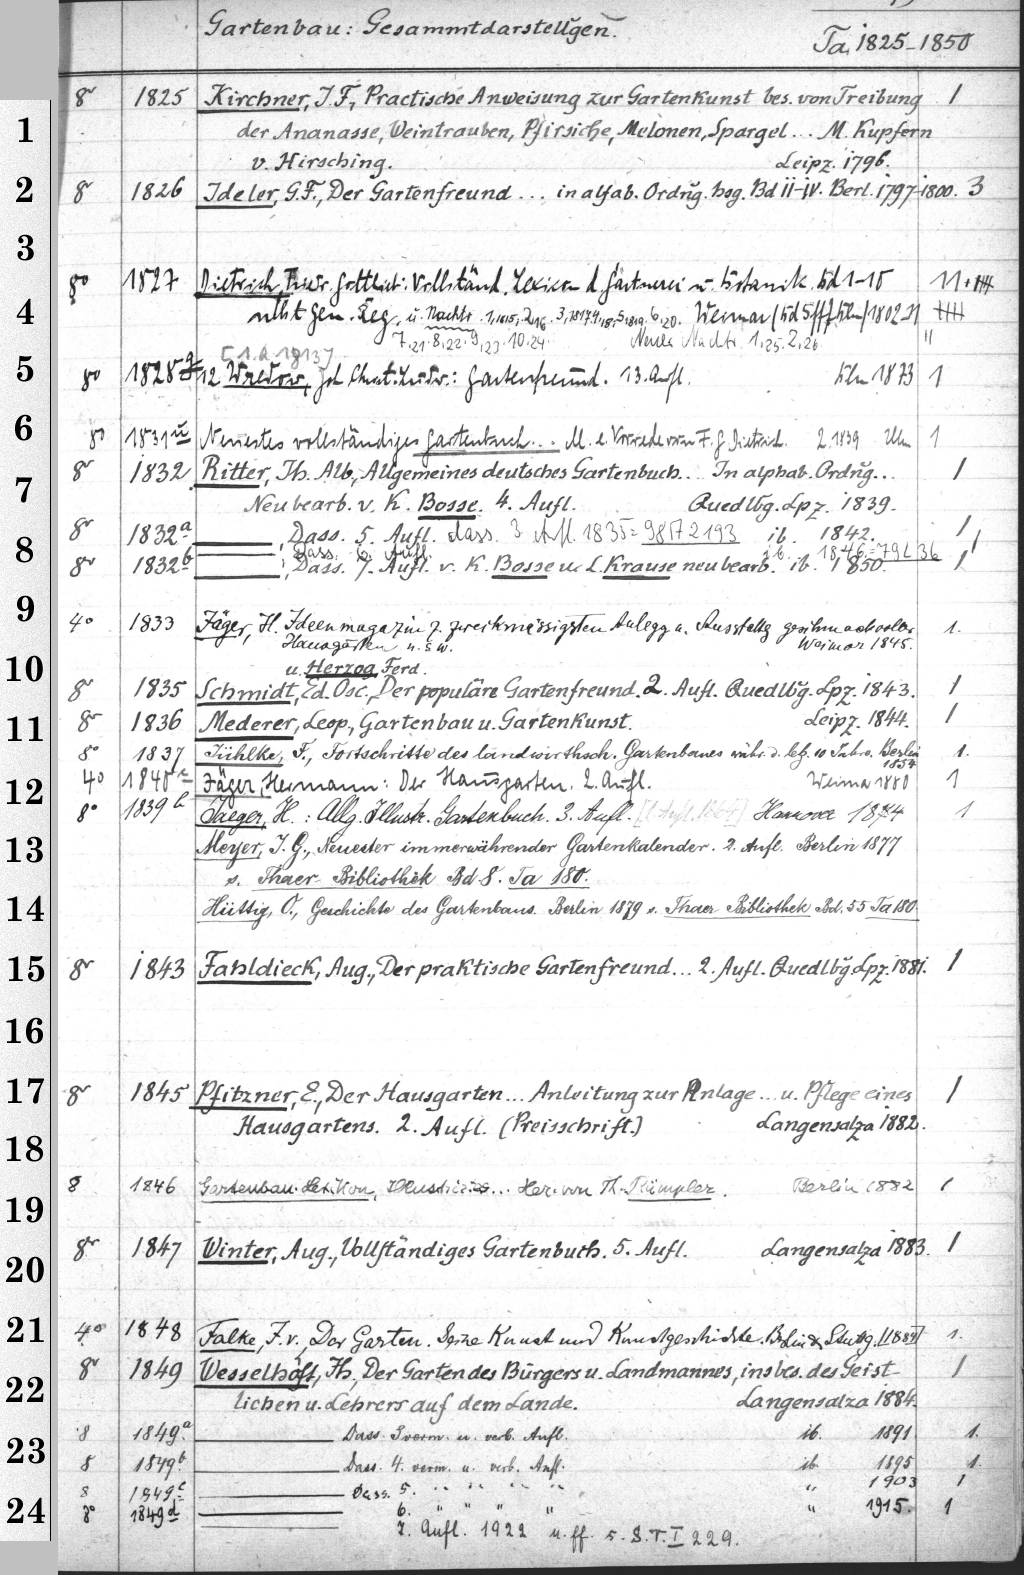 Gartenbau: Gesammtdarstellgen.
Ta 1825-1850
8r 1825 Kirchner, J. F., Practische Anweisung zur Gartenkunst bes. von Treibung 1
1
der Ananasse, Weintrauben, Pfirsiche, Melonen, Spargel... M. Kupfern
v. Hirsching. Leipz. 1796.
2 8r 1826 Ideler, G.F., Der Gartenfreund... in alfab. Ordng. hsg. Bd II-IV. Berl. 1797-1800. 3
3
8o 1827 Dietrich, Friedr. Gottlieb: Vollständ. Lexicon d. Gärtnerei u. Botanik. Bd 1-10
4 nebst Gen. Reg. u. Nachtr. Weimar 1802
Neuer Nachtr. 1,25. 2,26. "
5 8o 1828 12 Wredow, Joh. Christ. Ludw.: Gartenfreund. 13. Aufl. Bln 1873 1
6 8o 1831 Neuestes vollständiges Gartenbuch... M. e. Vorrede von F. G. Dietrich. 2. 1839 Ulm 1
8r 1832 Ritter, Th. Alb., Allgemeines deutsches Gartenbuch.. In alphab. Ordng... 1
7 Neubearb. v. K. Bosse. 4. Aufl. Quedlbg. Lpz. 1839.
8r 1832a Dass. 5. Aufl. dass. 3 Aufl. 1835= ib. 1842. 1
8 Dass. 6. Aufl. ib. 1846. 1
8r 1832b Dass. 7. Aufl. v. K. Bosse u. L. Krause neubearb. ib. 1850. 1
9
4o 1833 Jäger, H. Ideenmagazin z. zweckmässigsten Anlegg u. Ausstattg geschmackvoller 1.
Hausgärten u. s. w. Weimar 1845.
10 u. Herzog, Ferd.
8r 1835 Schmidt, Ed. Osc., Der populäre Gartenfreund. 2. Aufl. Quedlbg. Lpz. 1843. 1
11 8r 1836 Mederer, Leop., Gartenbau u. Gartenkunst. Leipz. 1844. 1
8o 1837 Jühlke, F., Fortschritte des landwirthsch. Gartenbaues währ. d. letz. 10 Jahre. Berlin 1854 1.
12 4o 1840 Jäger, Hermann: Der Hausgarten. 2. Aufl. Weimar 1880 1
8o 1839b Jaeger, H.: Allg. Illustr. Gartenbuch. 3. Aufl. [1 Aufl. 1864] Hannover 1874 1
13 Meyer, J. G., Neuester immerwährender Gartenkalender. 2. Aufl. Berlin 1877
s. Thaer-Bibliothek Bd. 8. Ta 180.
14 Hüttig, O., Geschichte des Gartenbaus. Berlin 1879 s. Thaer Bibliothek Bd. 55 Ta 180.
15 8r 1843 Fahldieck, Aug., Der praktische Gartenfreund... 2. Aufl. Quedlbg Lpz. 1881. 1
16
17 8r 1845 Pfitzner, E., Der Hausgarten... Anleitung zur Anlage... u. Pflege eines 1
Hausgartens. 2. Aufl. (Preisschrift.) Langensalza 1882.
18
8 1846 Gartenbau-Lexikon, Illustriertes... Her. von Th. Rümpler. Berlin 1882 1
19
8r 1847 Winter, Aug., Vollständiges Gartenbuch. 5. Aufl. Langensalza 1883. 1
20
21 4o 1848 Falke, J. v., Der Garten. Seine Kunst und Kunstgeschichte. Berlin & Stuttg. [1884] 1.
8r 1849 Wesselhöft, Th., Der Garten des Bürgers u. Landmannes, insbes. des Geist- 1
22 lichen u. Lehrers auf dem Lande. Langensalza 1884.
8 1849a Dass. 3 verm. u. verb. Aufl. ib. 1891 1.
23
8 1849b Dass. 4. verm. u. verb. Aufl. ib 1895 1.
8 1849c Dass. 5. " " " " " 1903 1
24 8o 1849d 6. " " " " " 1915. 1
7. Aufl. 1922 u. ff. s. S.T.I 229.